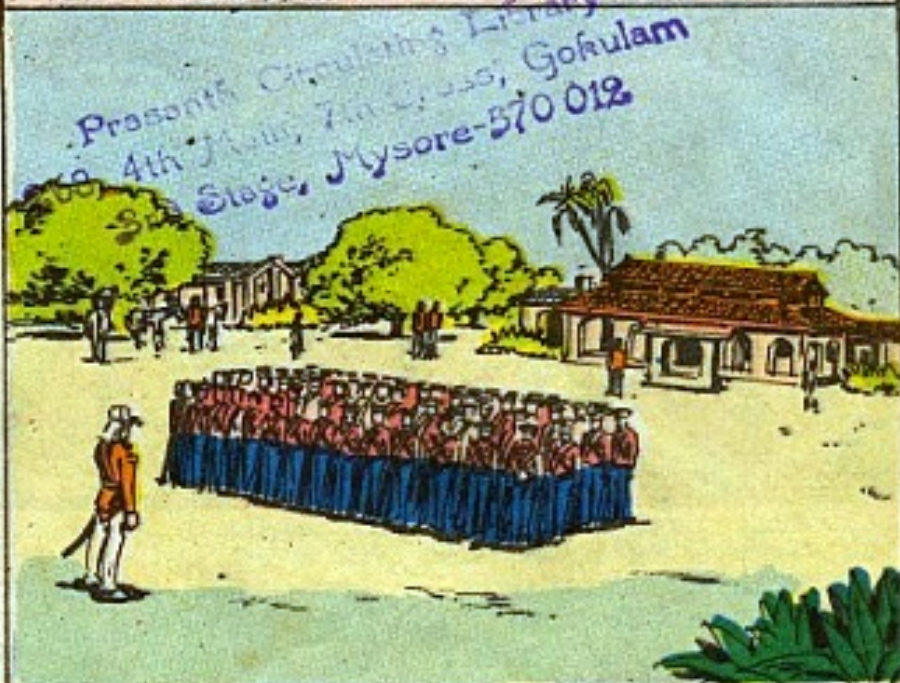 Prasanth Circulating Library
4th Main, Gokulam
Stage, Mysore-570 012